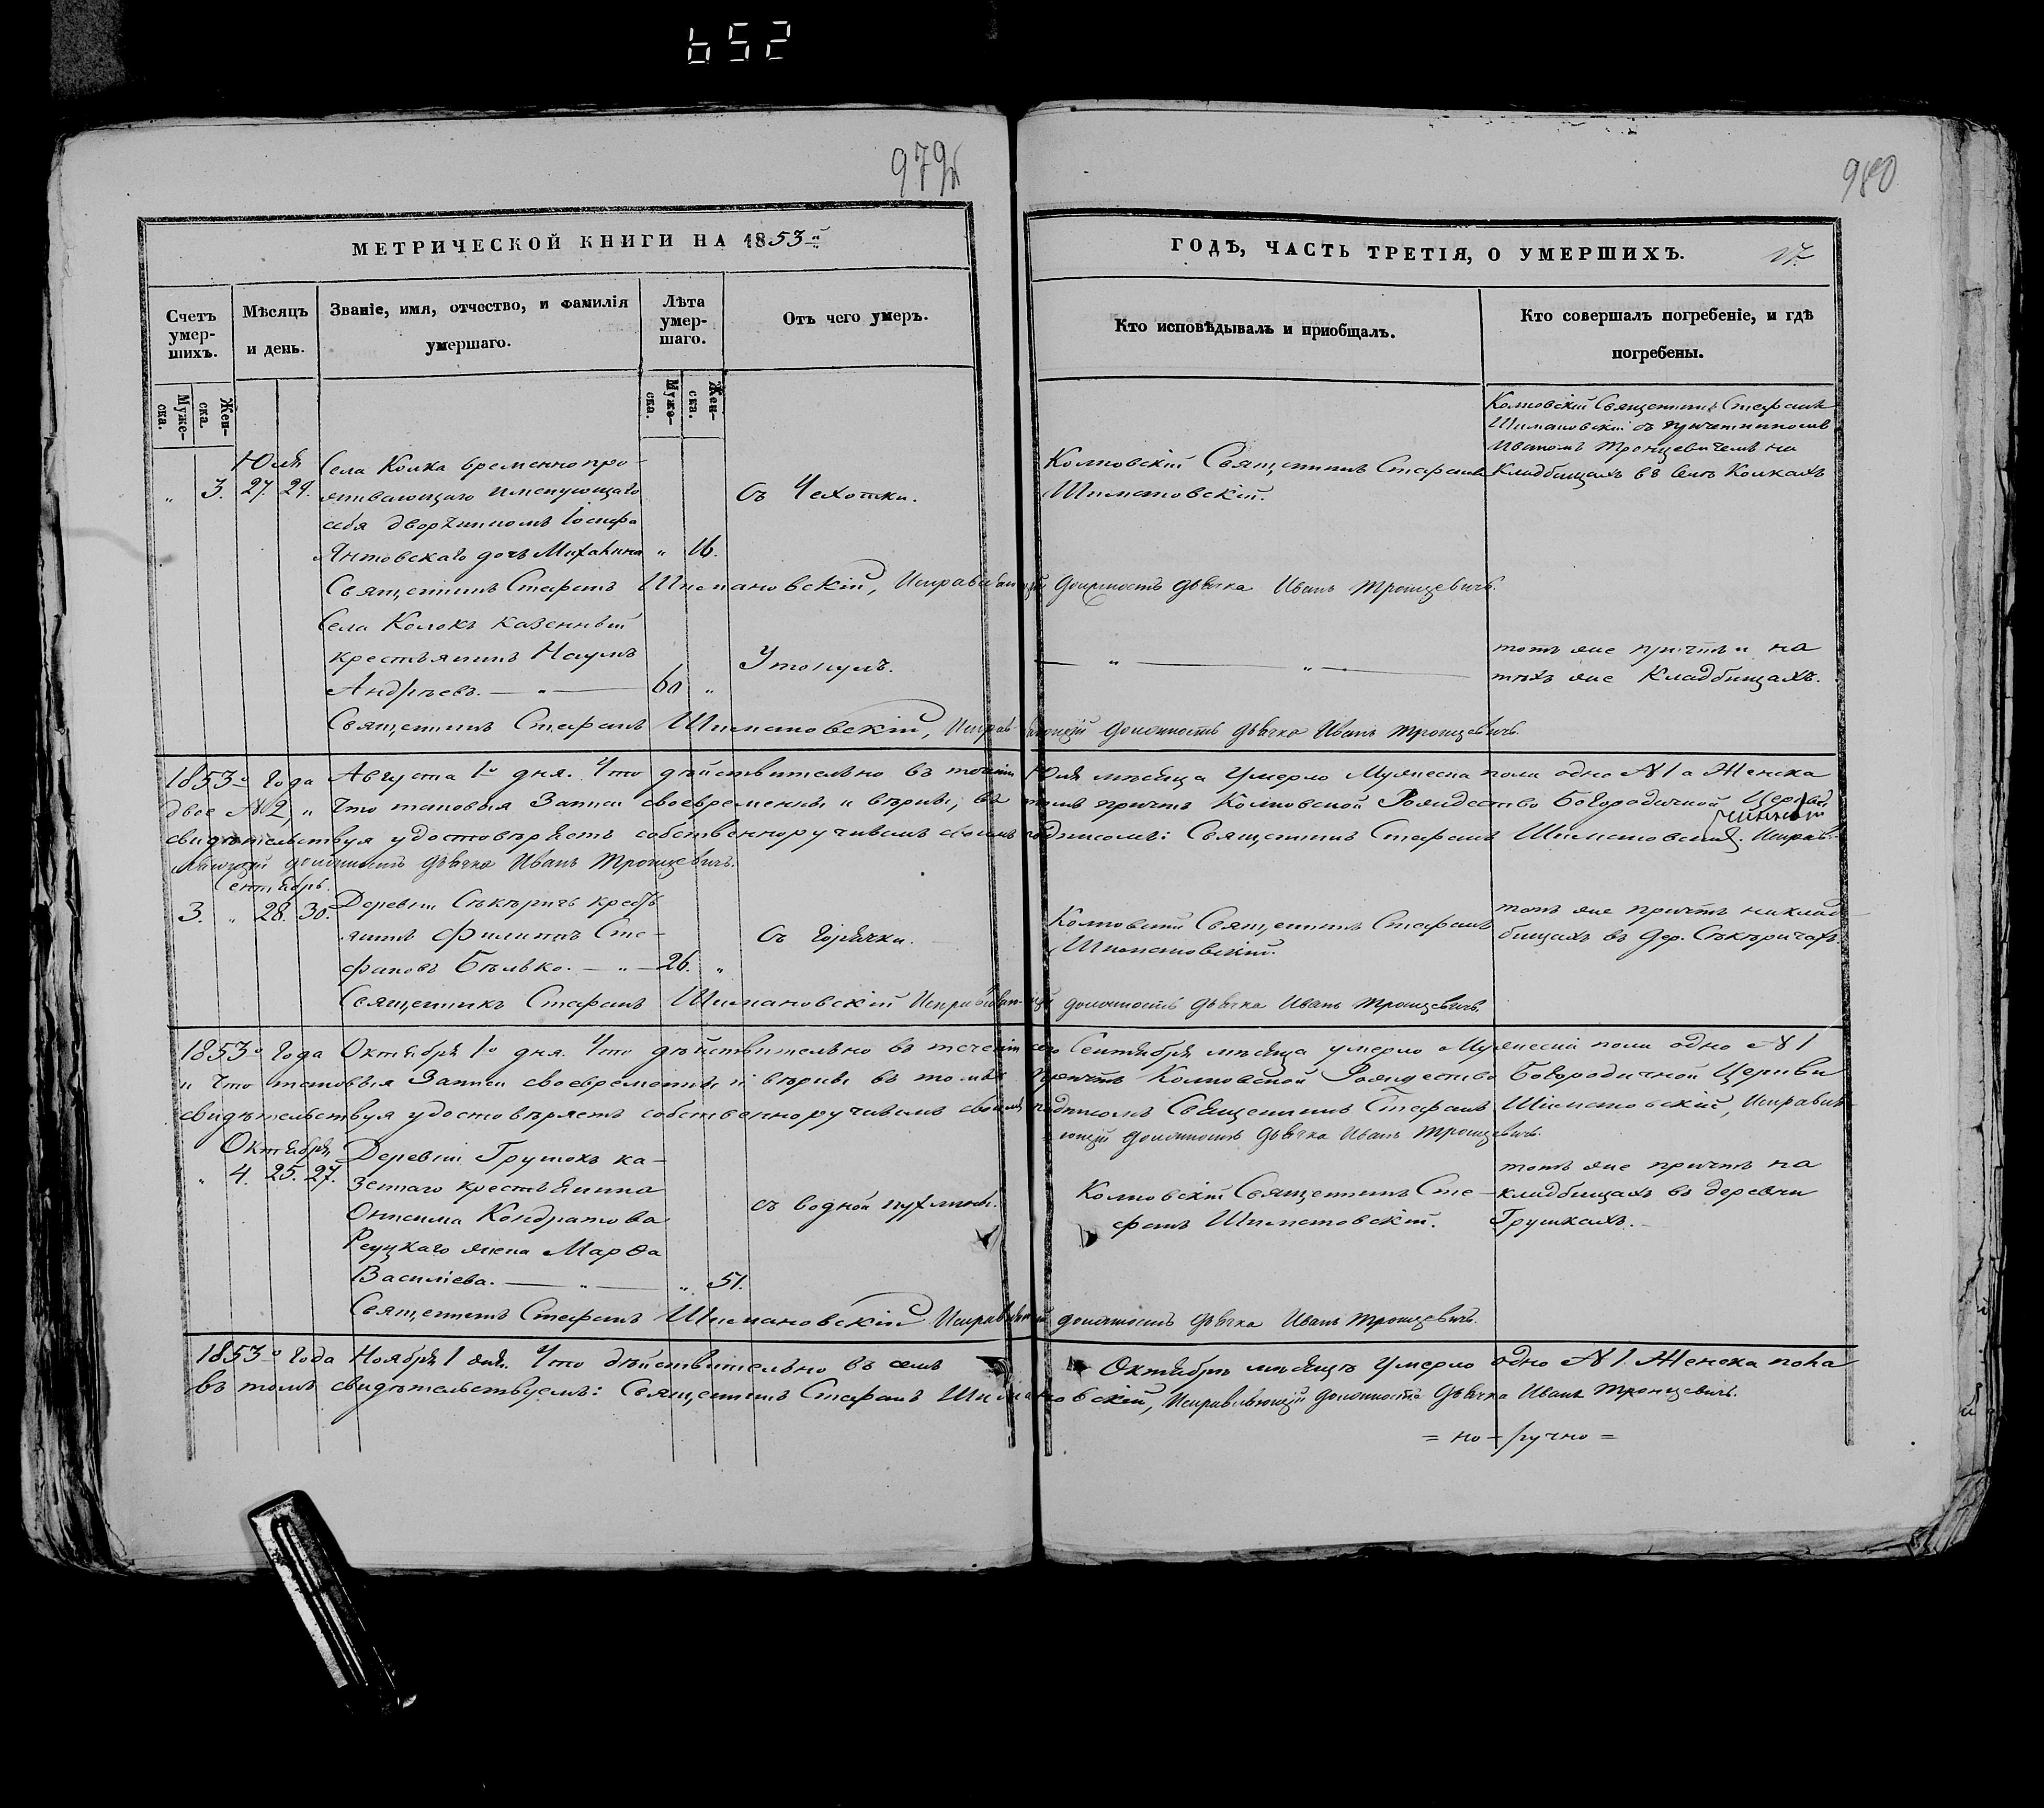 652
979
980
МЕТРИЧЕСКОЙ КНИГИ НА 1853й
ГОДЪ, ЧАСТЬ ТРЕТІЯ, О УМЕРШИХЪ.
17.
Счетъ умер-
шихъ.
Мѣсяцъ
и день.
Званіе, имя, отчество, и фамилія
умершаго.
Лѣта
умер-
шаго.
Отъ чего умеръ.
Кто исповѣдывалъ и приобщалъ.
Кто совершалъ погребеніе, и гдѣ
погребены.
Муже-
ска.
Жен-
ска.
Муже-
ска.
Жен-
ска.
Іюля
„ 3. 27. 29.
Села Колка временно про-
живающаго именующаго
себя дворяниномъ Іосифа
Янтовскаго дочь Михалина „ 16.
Съ Чехотки.
Колковскій Священникъ Стефанъ
Шимановскій.
Колковскій Священникъ Стефанъ
Шимановскій съ причетникомъ
Иваномъ Тронцевичемъ на
Кладбищахъ въ селѣ Колкахъ
Священникъ Стефанъ Шимановскій, Исправляющій должность дьячка Иванъ Тронцевичъ.
Села Колокъ казенный
крестьянинъ Наумъ
Андреевъ. — „ — 60 „
Утонулъ.
— „ — „ —
тотъ же причтъ и на
тѣхъ же Кладбищахъ.
Священникъ Стефанъ Шимановскій, Исправляющій должность дьячка Иванъ Тронцевичъ.
1853го Года Августа 1го дня. Что дѣйствительно въ теченіи Іюля мѣсяца Умерло Мужеска пола одно №1 а Женска
двое №2, „ Что таковыя Записи своевременны и вѣрны, въ томъ причтъ Колковской Рождество Богородичной Церкви,
свидѣтельствуя удостовѣряетъ собственноручнымъ своимъ подписомъ: Священникъ Стефанъ Шимановскій. Исправ-
ляющій должность дьячка Иванъ Тронцевичъ.
Сентябрь.
3. „ 28. 30.
Деревни Сѣкѣричъ кресть
янинъ Филиппъ Сте-
фановъ Бѣлько. — „ — 26. „
Съ Горячки.
Колковскій Священникъ Стефанъ
Шимановскій.
тотъ же причтъ на клад-
бищахъ въ дер. Сѣкѣричахъ.
Священникъ Стефанъ Шимановскій Исправляющій должность дьячка Иванъ Тронцевичъ.
1853го Года Октября 1го дня. Что дѣйствительно въ теченіи сего Сентября мѣсяца умерло Мужеска пола одно №1
и Что таковыя Записи своевременны и вѣрны въ томъ причтъ Колковской Рождество Богородичной Церкви
свидѣтельствуя удостовѣряетъ собственноручнымъ своимъ подписомъ Священникъ Стефанъ Шимановскій, Исправля-
ющій должность дьячка Иванъ Тронцевичъ.
Октября
„ 4. 25. 27.
Деревни Грушокъ ка-
зеннаго крестьянина
Онисима Кондратова
Реуцкаго жена Марѳа
Василіева. — „ — „ 51.
съ водной пухлины.
Колковскій Священникъ Сте-
фанъ Шимановскій.
тотъ же причтъ на
кладбищахъ въ деревни
Грушкахъ. —
Священникъ Стефанъ Шимановскій Исправляющій должность дьячка Иванъ Тронцевичъ.
1853го Года Ноября 1 дня. Что дѣйствительно въ семъ Октябрь мѣсяцѣ Умерло одно №1. Женска пола
въ томъ свидѣтельствуемъ: Священникъ Стефанъ Шимановскій, Исправляющій должность Дьячка Иванъ Тронцевичъ.
= но – ручно =